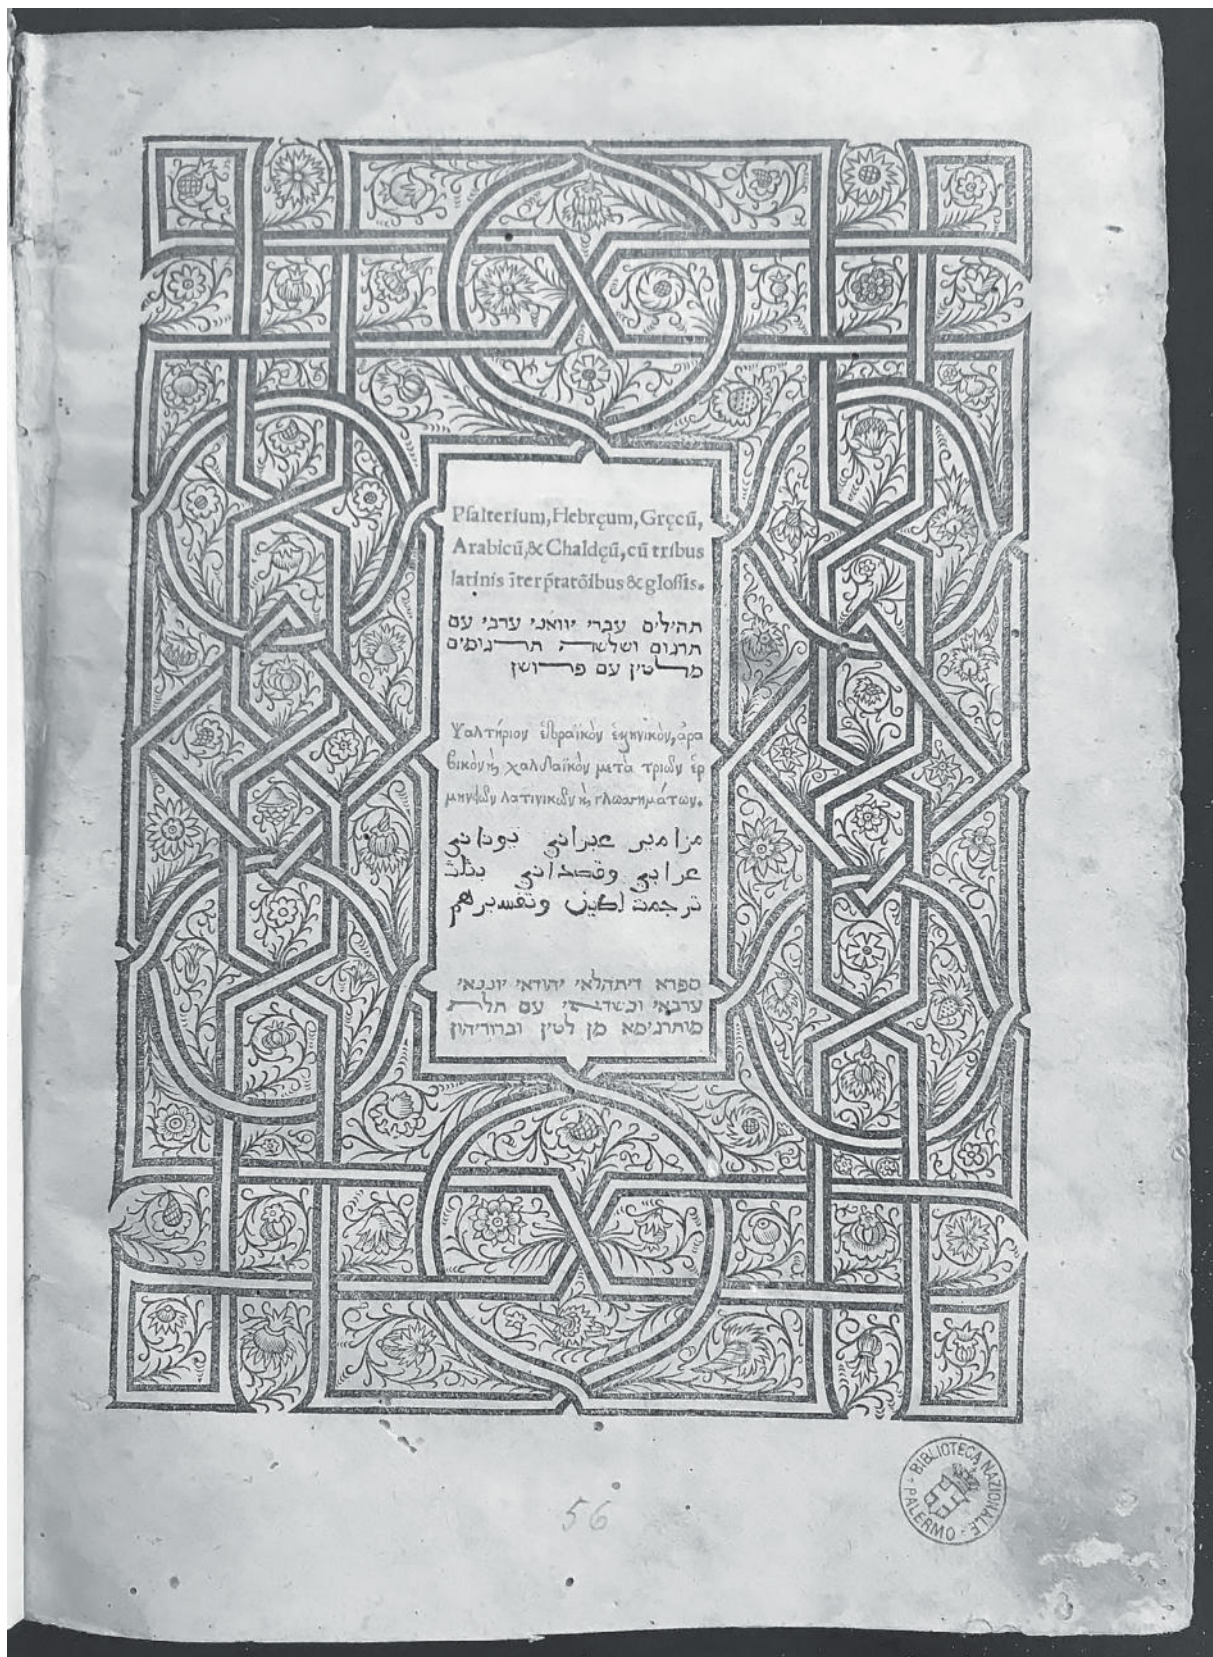 Pſalterium, Hebręum, Gręcū,
Arabicū, & Chaldęū, cū tribus
latinis īterp̄tatōibus & gloſſis.
תהילים עברי יוואני ערבי עם
תרגום ושלשה תרגומים
מלטין עם פרושן
Ψαλτήριον ἑβραϊκὸν ἑλληνικὸν, ἀρα
βικὸν καὶ χαλδαϊκὸν μετὰ τριῶν ἑρ
λατινικῶν καὶ γλωσσημάτων.
مزامير عبراني يوناني
عرابي وقصداني بثلث
ترجمت لطين وتفسيرهم
ספרא דיתהלאי יהודאי יונבאי
ערבאי וכשדאי עם תלת
מותרגימא מן לטין ובדודיהון
56
BIBLIOTECA NAZIONALE
- PALERMO -